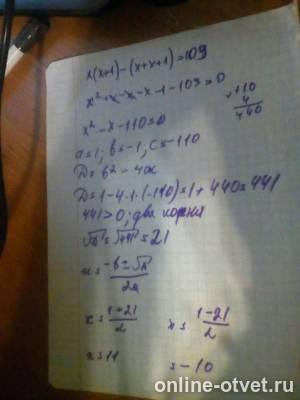 x(x+1)-(x+x+1)=109
x²+x-x-x-1-109=0
x²-x-110=0
a=1; b=-1; c=-110
D=b²-4ac
D=1-4·1·(-110)=1+440=441
441>0; два корня
√D=√441=21
x=(-b±√D)/2a
x=(1+21)/2
x=11
x=(1-21)/2
=-10
×110
4
440
online-otvet.ru